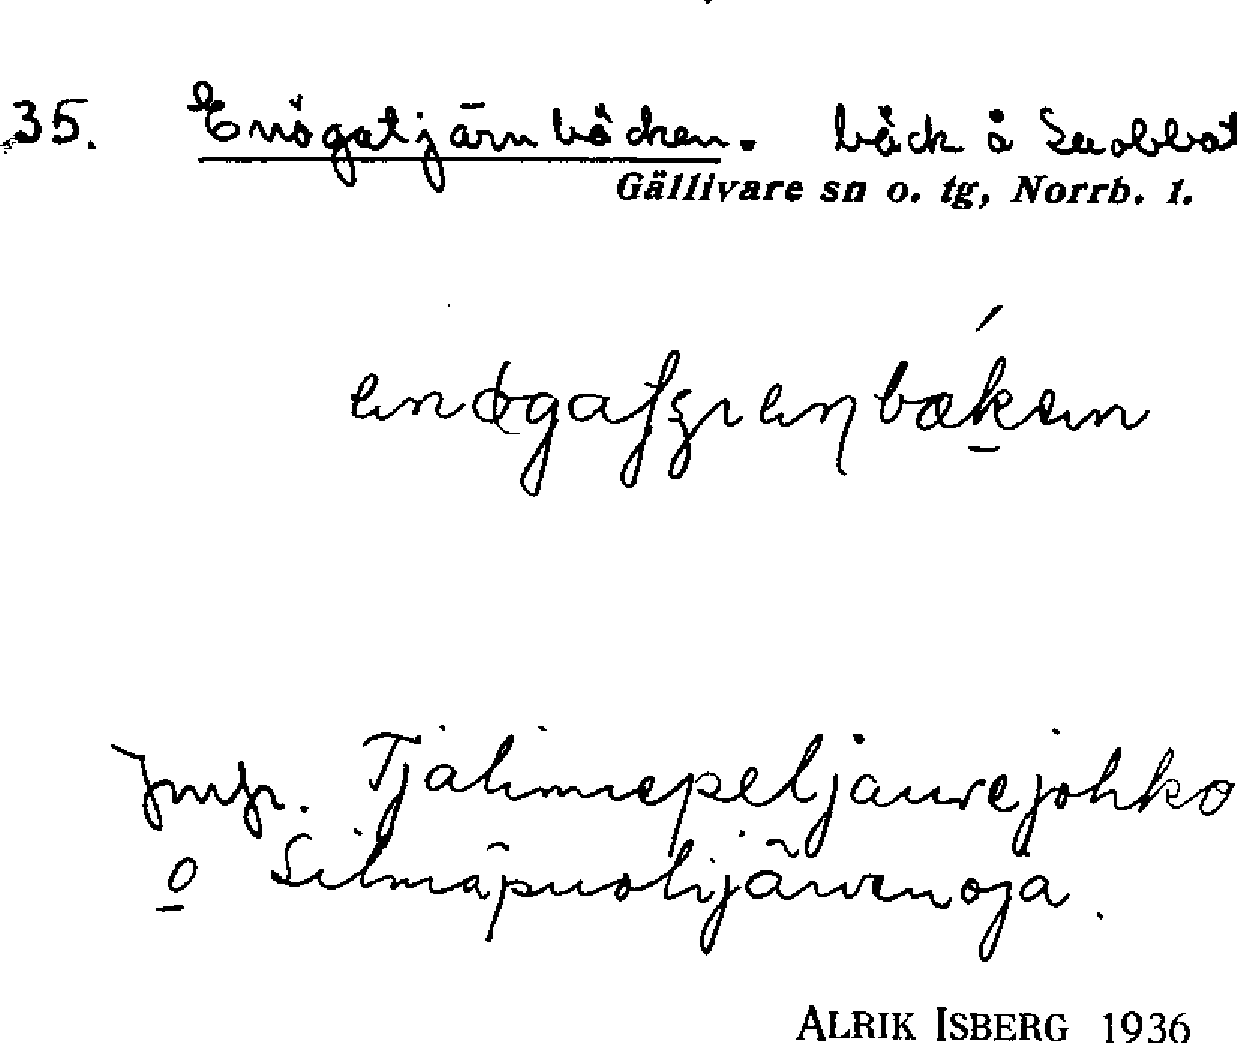 35. Enögatjärnbäcken. bäck å Suobbat
Gällivare sn o. tg, Norrb. l.
Jmfr. Tjalmiepeljaurejohko
o Silmäpuolijärvenoja.
ALRIK ISBERG 1936